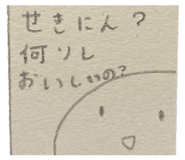 せきにん?
何ソレ
おいしいの?